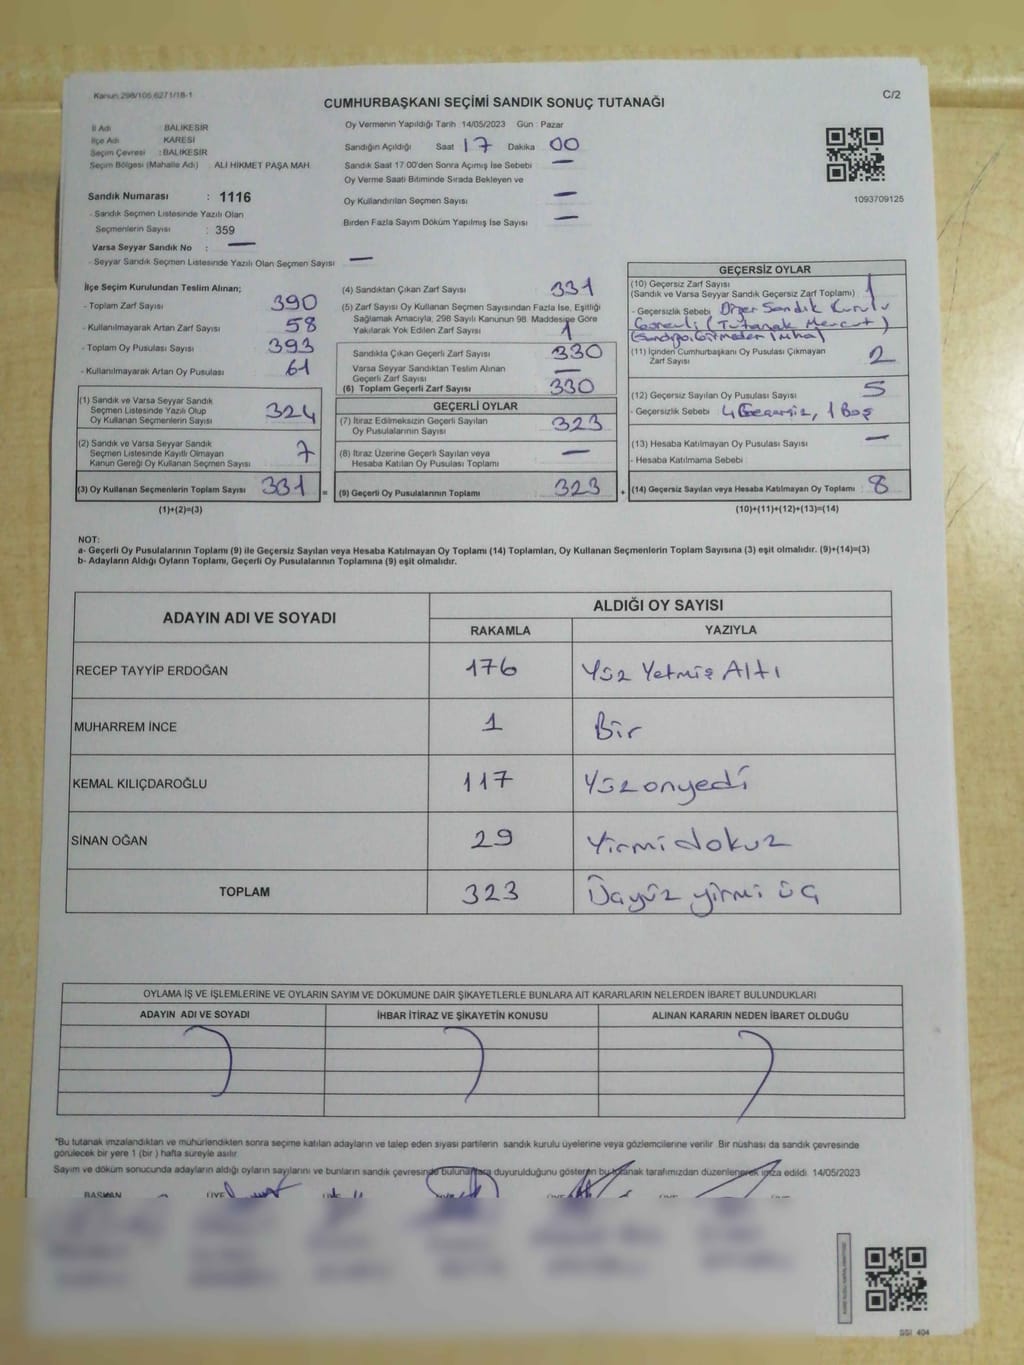 Kanun 298/105,6271/18-1
CUMHURBAŞKANI SEÇİMİ SANDIK SONUÇ TUTANAĞI
C/2
İl Adı BALIKESİR
İlçe Adı KARESİ
Seçim Çevresi : BALIKESİR
Seçim Bölgesi (Mahalle Adı) ALİ HİKMET PAŞA MAH.
Sandık Numarası : 1116
- Sandık Seçmen Listesinde Yazılı Olan
Seçmenlerin Sayısı : 359
Varsa Seyyar Sandık No : —
- Seyyar Sandık Seçmen Listesinde Yazılı Olan Seçmen Sayısı —
Oy Vermenin Yapıldığı Tarih 14/05/2023 Gün : Pazar
Sandığın Açıldığı Saat 17 Dakika 00
Sandık Saat 17 00'den Sonra Açımış İse Sebebi —
Oy Verme Saati Bitiminde Sırada Bekleyen ve
Oy Kullandırılan Seçmen Sayısı —
Birden Fazla Sayım Döküm Yapılmış İse Sayısı —
1093709125
İlçe Seçim Kurulundan Teslim Alınan;
- Toplam Zarf Sayısı 390
- Kullanılmayarak Artan Zarf Sayısı 58
- Toplam Oy Pusulası Sayısı 393
- Kullanılmayarak Artan Oy Pusulası 61
(1) Sandık ve Varsa Seyyar Sandık
Seçmen Listesinde Yazılı Olup
Oy Kullanan Seçmenlerin Sayısı 324
(2) Sandık ve Varsa Seyyar Sandık
Seçmen Listesinde Kayıtlı Olmayan
Kanun Gereği Oy Kullanan Seçmen Sayısı 7
(3) Oy Kullanan Seçmenlerin Toplam Sayısı 331 =
(1)+(2)=(3)
(4) Sandıktan Çıkan Zarf Sayısı 331
(5) Zarf Sayısı Oy Kullanan Seçmen Sayısından Fazla İse, Eşitliği
Sağlamak Amacıyla, 298 Sayılı Kanunun 98. Maddesine Göre
Yakılarak Yok Edilen Zarf Sayısı 1
Sandıkta Çıkan Geçerli Zarf Sayısı 330
Varsa Seyyar Sandıktan Teslim Alınan
Geçerli Zarf Sayısı —
(6) Toplam Geçerli Zarf Sayısı 330
GEÇERLİ OYLAR
(7) İtiraz Edilmeksizin Geçerli Sayılan
Oy Pusulalarının Sayısı 323
(8) İtiraz Üzerine Geçerli Sayılan veya
Hesaba Katılan Oy Pusulası Toplamı —
(9) Geçerli Oy Pusulalarının Toplamı 323 +
GEÇERSİZ OYLAR
(10) Geçersiz Zarf Sayısı
(Sandık ve Varsa Seyyar Sandık Geçersiz Zarf Toplamı) 1
- Geçersizlik Sebebi Diğer Sandık Kurulu
Görevli (Tutanak Mevcut)
(11) İçinden Cumhurbaşkanı Oy Pusulası Çıkmayan
Zarf Sayısı 2
(12) Geçersiz Sayılan Oy Pusulası Sayısı 5
- Geçersizlik Sebebi 4 Geçersiz, 1 Boş
(13) Hesaba Katılmayan Oy Pusulası Sayısı —
- Hesaba Katılmama Sebebi
(14) Geçersiz Sayılan veya Hesaba Katılmayan Oy Toplamı 8
(10)+(11)+(12)+(13)=(14)
NOT:
a- Geçerli Oy Pusulalarının Toplamı (9) ile Geçersiz Sayılan veya Hesaba Katılmayan Oy Toplamı (14) Toplamları, Oy Kullanan Seçmenlerin Toplam Sayısına (3) eşit olmalıdır. (9)+(14)=(3)
b- Adayların Aldığı Oyların Toplamı, Geçerli Oy Pusulalarının Toplamına (9) eşit olmalıdır.
ADAYIN ADI VE SOYADI
ALDIĞI OY SAYISI
RAKAMLA YAZIYLA
RECEP TAYYİP ERDOĞAN 176 Yüz Yetmiş Altı
MUHARREM İNCE 1 Bir
KEMAL KILIÇDAROĞLU 117 Yüzonyedi
SİNAN OĞAN 29 Yirmidokuz
TOPLAM 323 Üçyüz yirmi üç
OYLAMA İŞ VE İŞLEMLERİNE VE OYLARIN SAYIM VE DÖKÜMÜNE DAİR ŞİKAYETLERLE BUNLARA AİT KARARLARIN NELERDEN İBARET BULUNDUKLARI
ADAYIN ADI VE SOYADI İHBAR İTİRAZ VE ŞİKAYETİN KONUSU ALINAN KARARIN NEDEN İBARET OLDUĞU
*Bu tutanak imzalandıktan ve mühürlendikten sonra seçime katılan adayların ve talep eden siyasi partilerin sandık kurulu üyelerine veya gözlemcilerine verilir. Bir nüshası da sandık çevresinde
görülecek bir yere 1 (bir) hafta süreyle asılır.
Sayım ve döküm sonucunda adayların aldığı oyların sayılarını ve bunların sandık çevresinde bulunanlara duyurulduğunu gösteren bu tutanak tarafımızdan düzenlenerek imza edildi. 14/05/2023
BAŞKAN ÜYE ÜYE ÜYE ÜYE
SSI 404